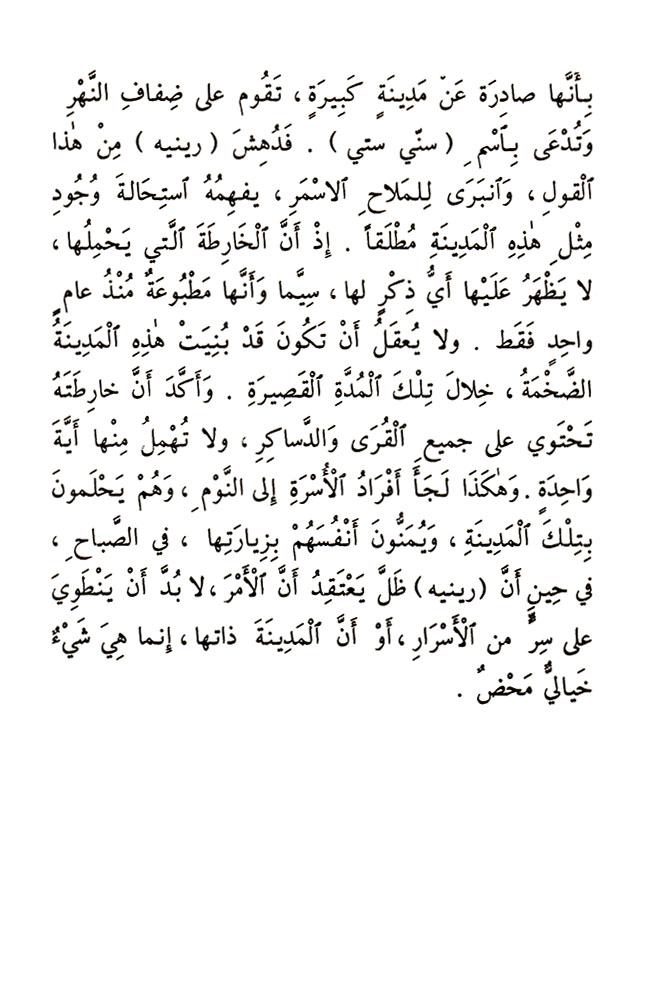 بِأَنَّها صادِرَة عَنْ مَدِينَةٍ كَبِيرَةٍ ، تَقُوم على ضِفافِ النَّهْرِ
وَتُدْعَى بِٱسْمِ ( سنّي ستي ) . فَدُهِشَ ( رينيه ) مِنْ هٰذا
ٱلْقولِ ، وَٱنبَرَى لِلمَلاحِ الاسْمَرِ ، يفهِمُهُ ٱستِحَالةَ وُجُودِ
مِثْلِ هٰذِهِ ٱلْمَدِينَةِ مُطْلَقاً . إِذْ أَنَّ ٱلْخَارِطَةَ ٱلَّتي يَحْمِلُها ،
لا يَظْهَرُ عَلَيْها أَيُّ ذِكْرٍ لها ، سِيَّما وَأَنَّها مَطْبُوعَةٌ مُنْذُ عامٍ
واحِدٍ فَقَط . ولا يُعقَلُ أَنْ تَكُونَ قَدْ بُنِيَتْ هٰذِهِ ٱلْمَدِينَةُ
الضَّخْمَةُ ، خِلالَ تِلْكَ ٱلْمُدَّةِ ٱلْقَصِيرَةِ . وَأَكَّدَ أَنَّ خارِطَتَهُ
تَحْتَوي على جميعِ ٱلْقُرَى وَالدَّساكِرِ ، ولا تُهْمِلُ مِنْها أَيَّةَ
وَاحِدَةٍ . وَهٰكَذَا لَجَأَ أَفْرَادُ ٱلْأُسْرَةِ إِلى النَّوْمِ ، وَهُمْ يَحْلَمونَ
بِتِلْكَ ٱلْمَدِينَةِ ، وَيُمَنُّونَ أَنْفُسَهُمْ بِزِيارَتِها ، في الصَّباحِ ،
في حِينٍ أَنَّ (رينيه) ظَلَّ يَعْتَقِدُ أَنَّ ٱلْأَمْرَ ، لا بُدَّ أَنْ يَنْطَوِيَ
على سِرٍّ من ٱلْأَسْرَارِ ، أَوْ أَنَّ ٱلْمَدِينَةَ ذاتها ، إِنما هِيَ شَيْءٌ
خَياليٌّ مَحْضٌ .